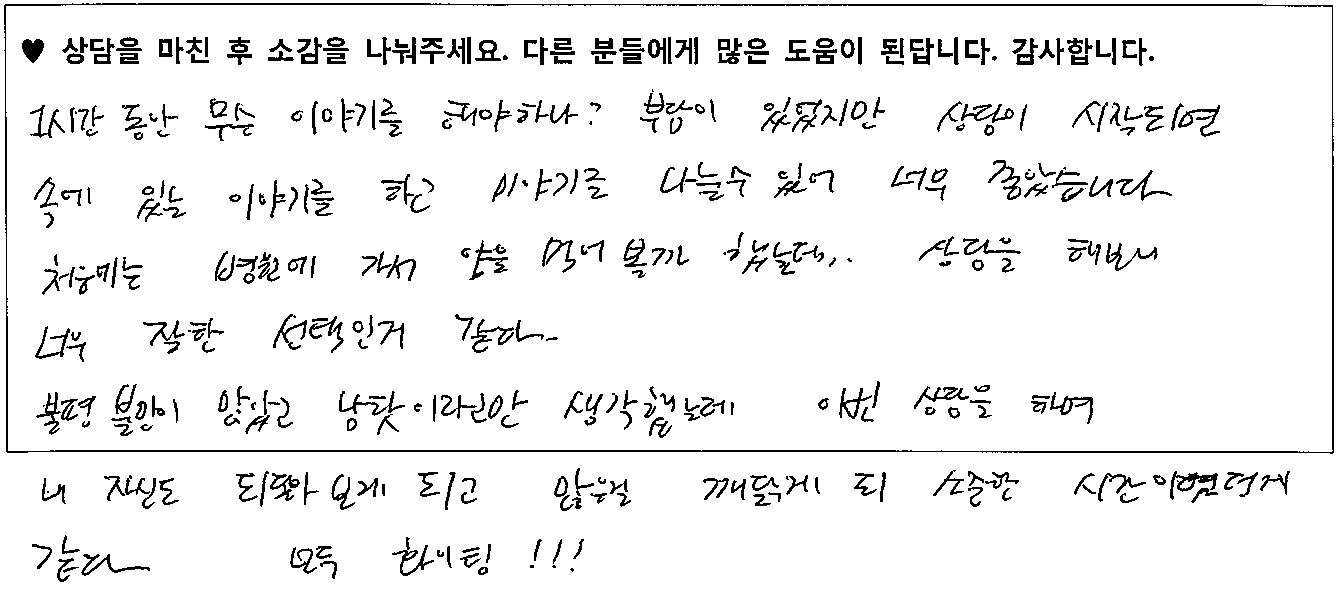 ♥ 상담을 마친 후 소감을 나눠주세요. 다른 분들에게 많은 도움이 된답니다. 감사합니다.
1시간 동안 무슨 이야기를 해야하나? 부담이 있었지만 상담이 시작되면
속에 있는 이야기를 하고 이야기를 나눌수 있어 너무 좋았습니다
처음에는 병원에 가서 약을 먹어 볼까 했는데.. 상담을 해보니
너무 잘한 선택인거 같다.
불평 불만이 많았고 남탓이라고만 생각했는데 이번 상담을 하며
내 자신도 되돌아 보게 되고 많은걸 깨닫게 되 소중한 시간이였던거
같다 모두 화이팅 !!!